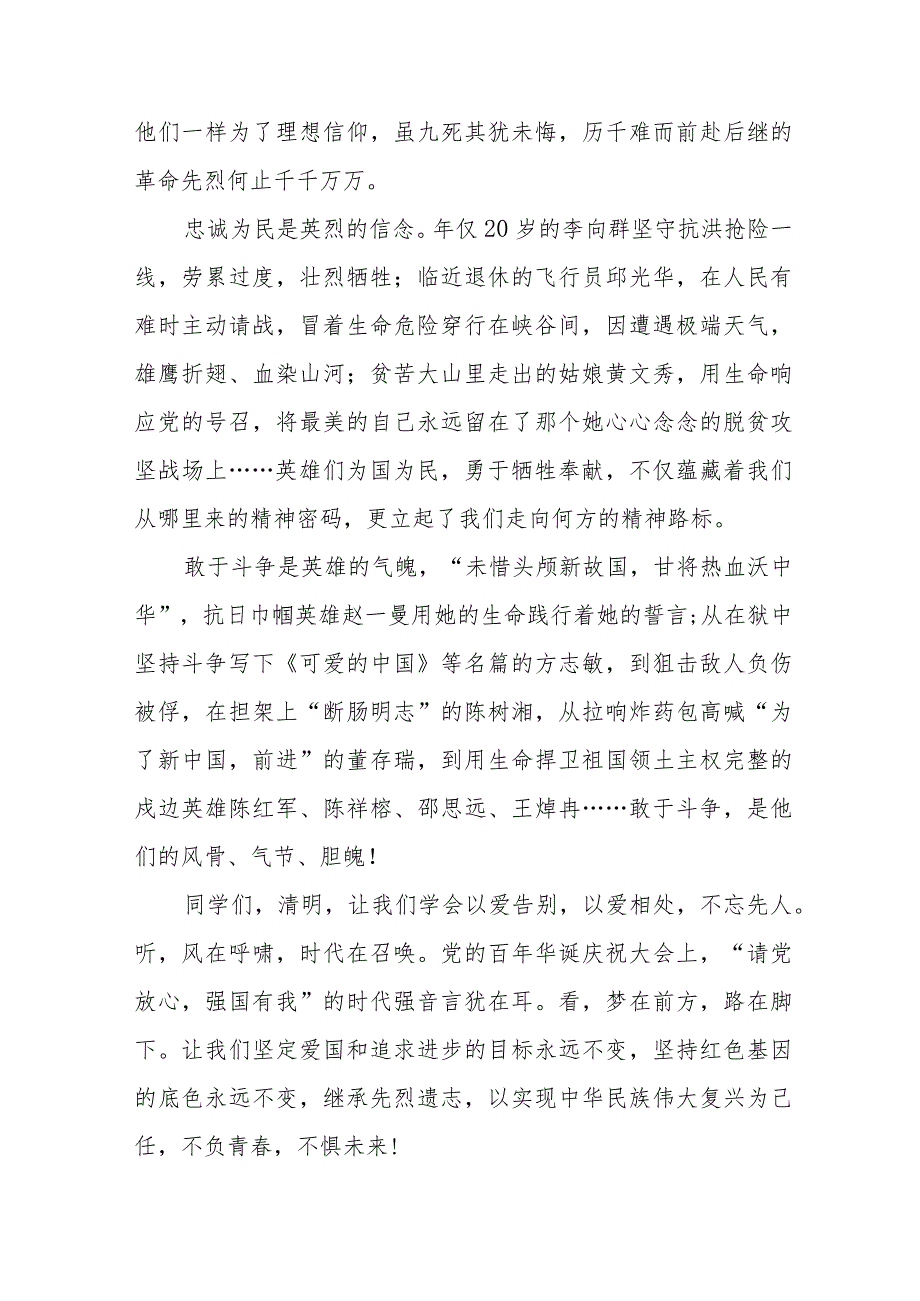 他们一样为了理想信仰，虽九死其犹未悔，历千难而前赴后继的
革命先烈何止千千万万。
忠诚为民是英烈的信念。年仅 20 岁的李向群坚守抗洪抢险一
线，劳累过度，壮烈牺牲；临近退休的飞行员邱光华，在人民有
难时主动请战，冒着生命危险穿行在峡谷间，因遭遇极端天气，
雄鹰折翅、血染山河；贫苦大山里走出的姑娘黄文秀，用生命响
应党的号召，将最美的自己永远留在了那个她心心念念的脱贫攻
坚战场上……英雄们为国为民，勇于牺牲奉献，不仅蕴藏着我们
从哪里来的精神密码，更立起了我们走向何方的精神路标。
敢于斗争是英雄的气魄，“未惜头颅新故国，甘将热血沃中
华”，抗日巾帼英雄赵一曼用她的生命践行着她的誓言;从在狱中
坚持斗争写下《可爱的中国》等名篇的方志敏，到狙击敌人负伤
被俘，在担架上“断肠明志”的陈树湘，从拉响炸药包高喊“为
了新中国，前进”的董存瑞，到用生命捍卫祖国领土主权完整的
戍边英雄陈红军、陈祥榕、邵思远、王焯冉……敢于斗争，是他
们的风骨、气节、胆魄！
同学们，清明，让我们学会以爱告别，以爱相处，不忘先人。
听，风在呼啸，时代在召唤。党的百年华诞庆祝大会上，“请党
放心，强国有我”的时代强音言犹在耳。看，梦在前方，路在脚
下。让我们坚定爱国和追求进步的目标永远不变，坚持红色基因
的底色永远不变，继承先烈遗志，以实现中华民族伟大复兴为己
任，不负青春，不惧未来!